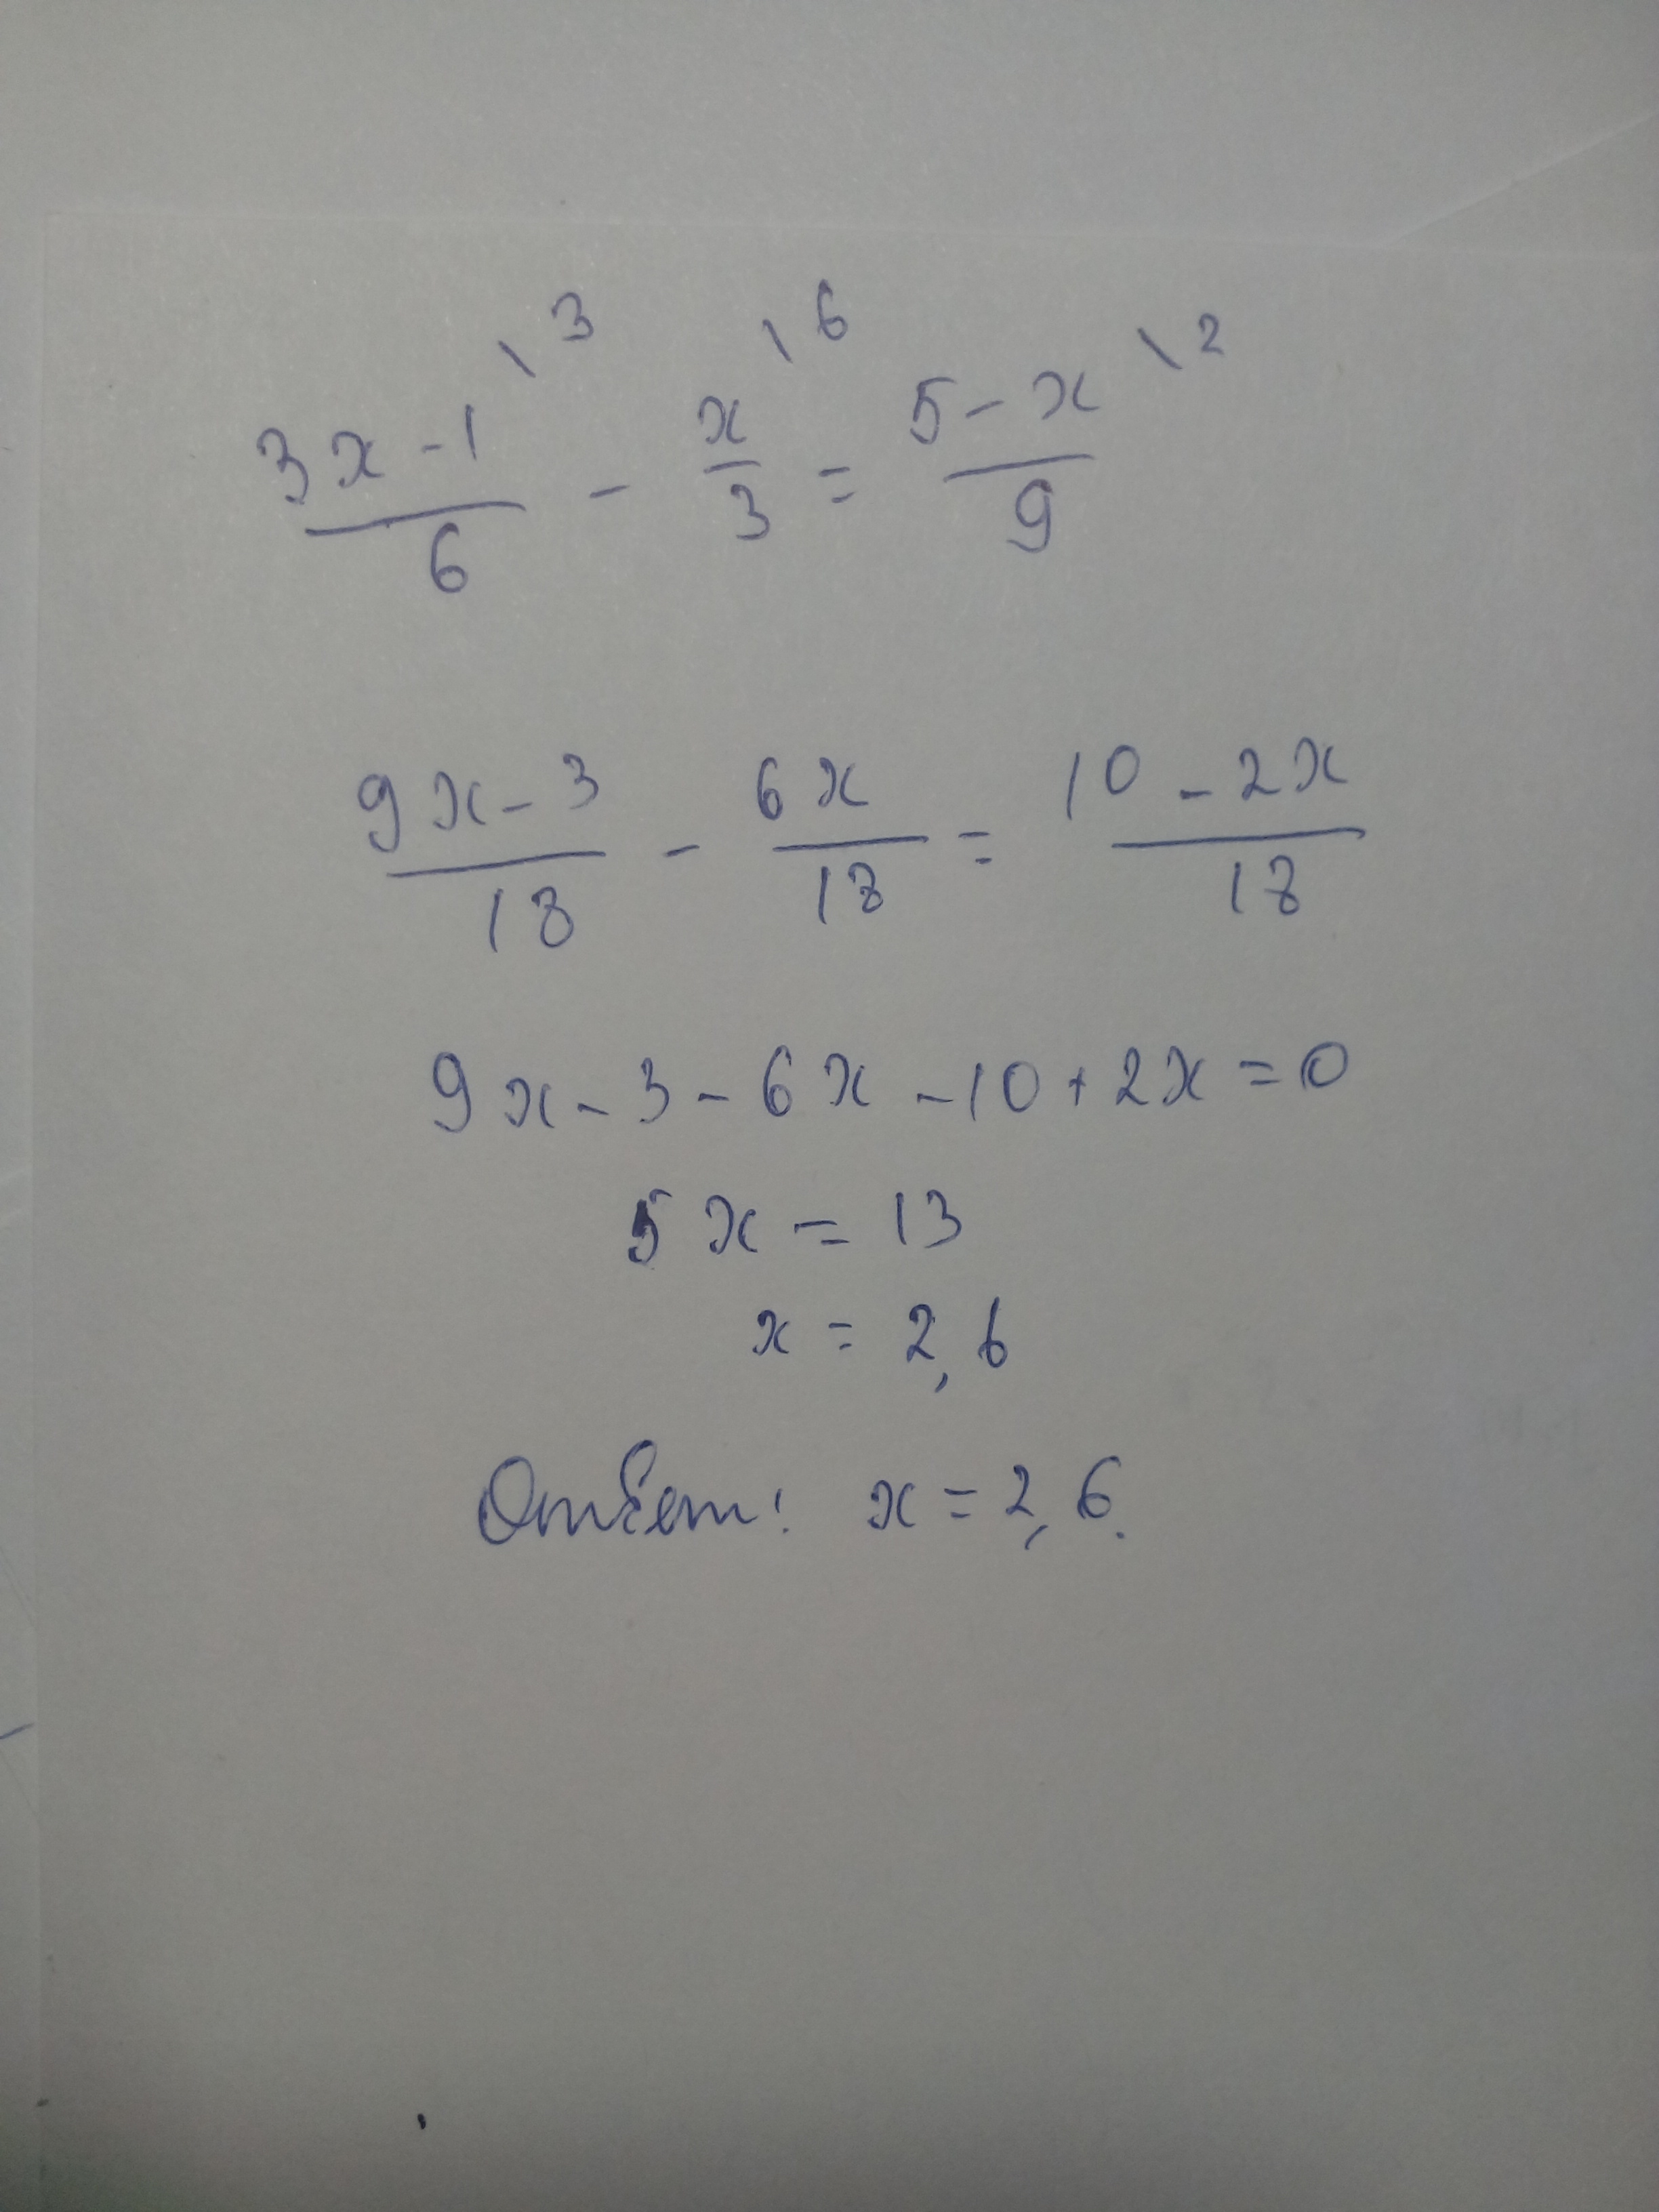 \3 \6 \2
3x-1/6 - x/3 = 5-x/9
9x-3/18 - 6x/18 = 10-2x/18
9x-3-6x-10+2x=0
5x=13
x=2,6
Ответ: x=2,6.